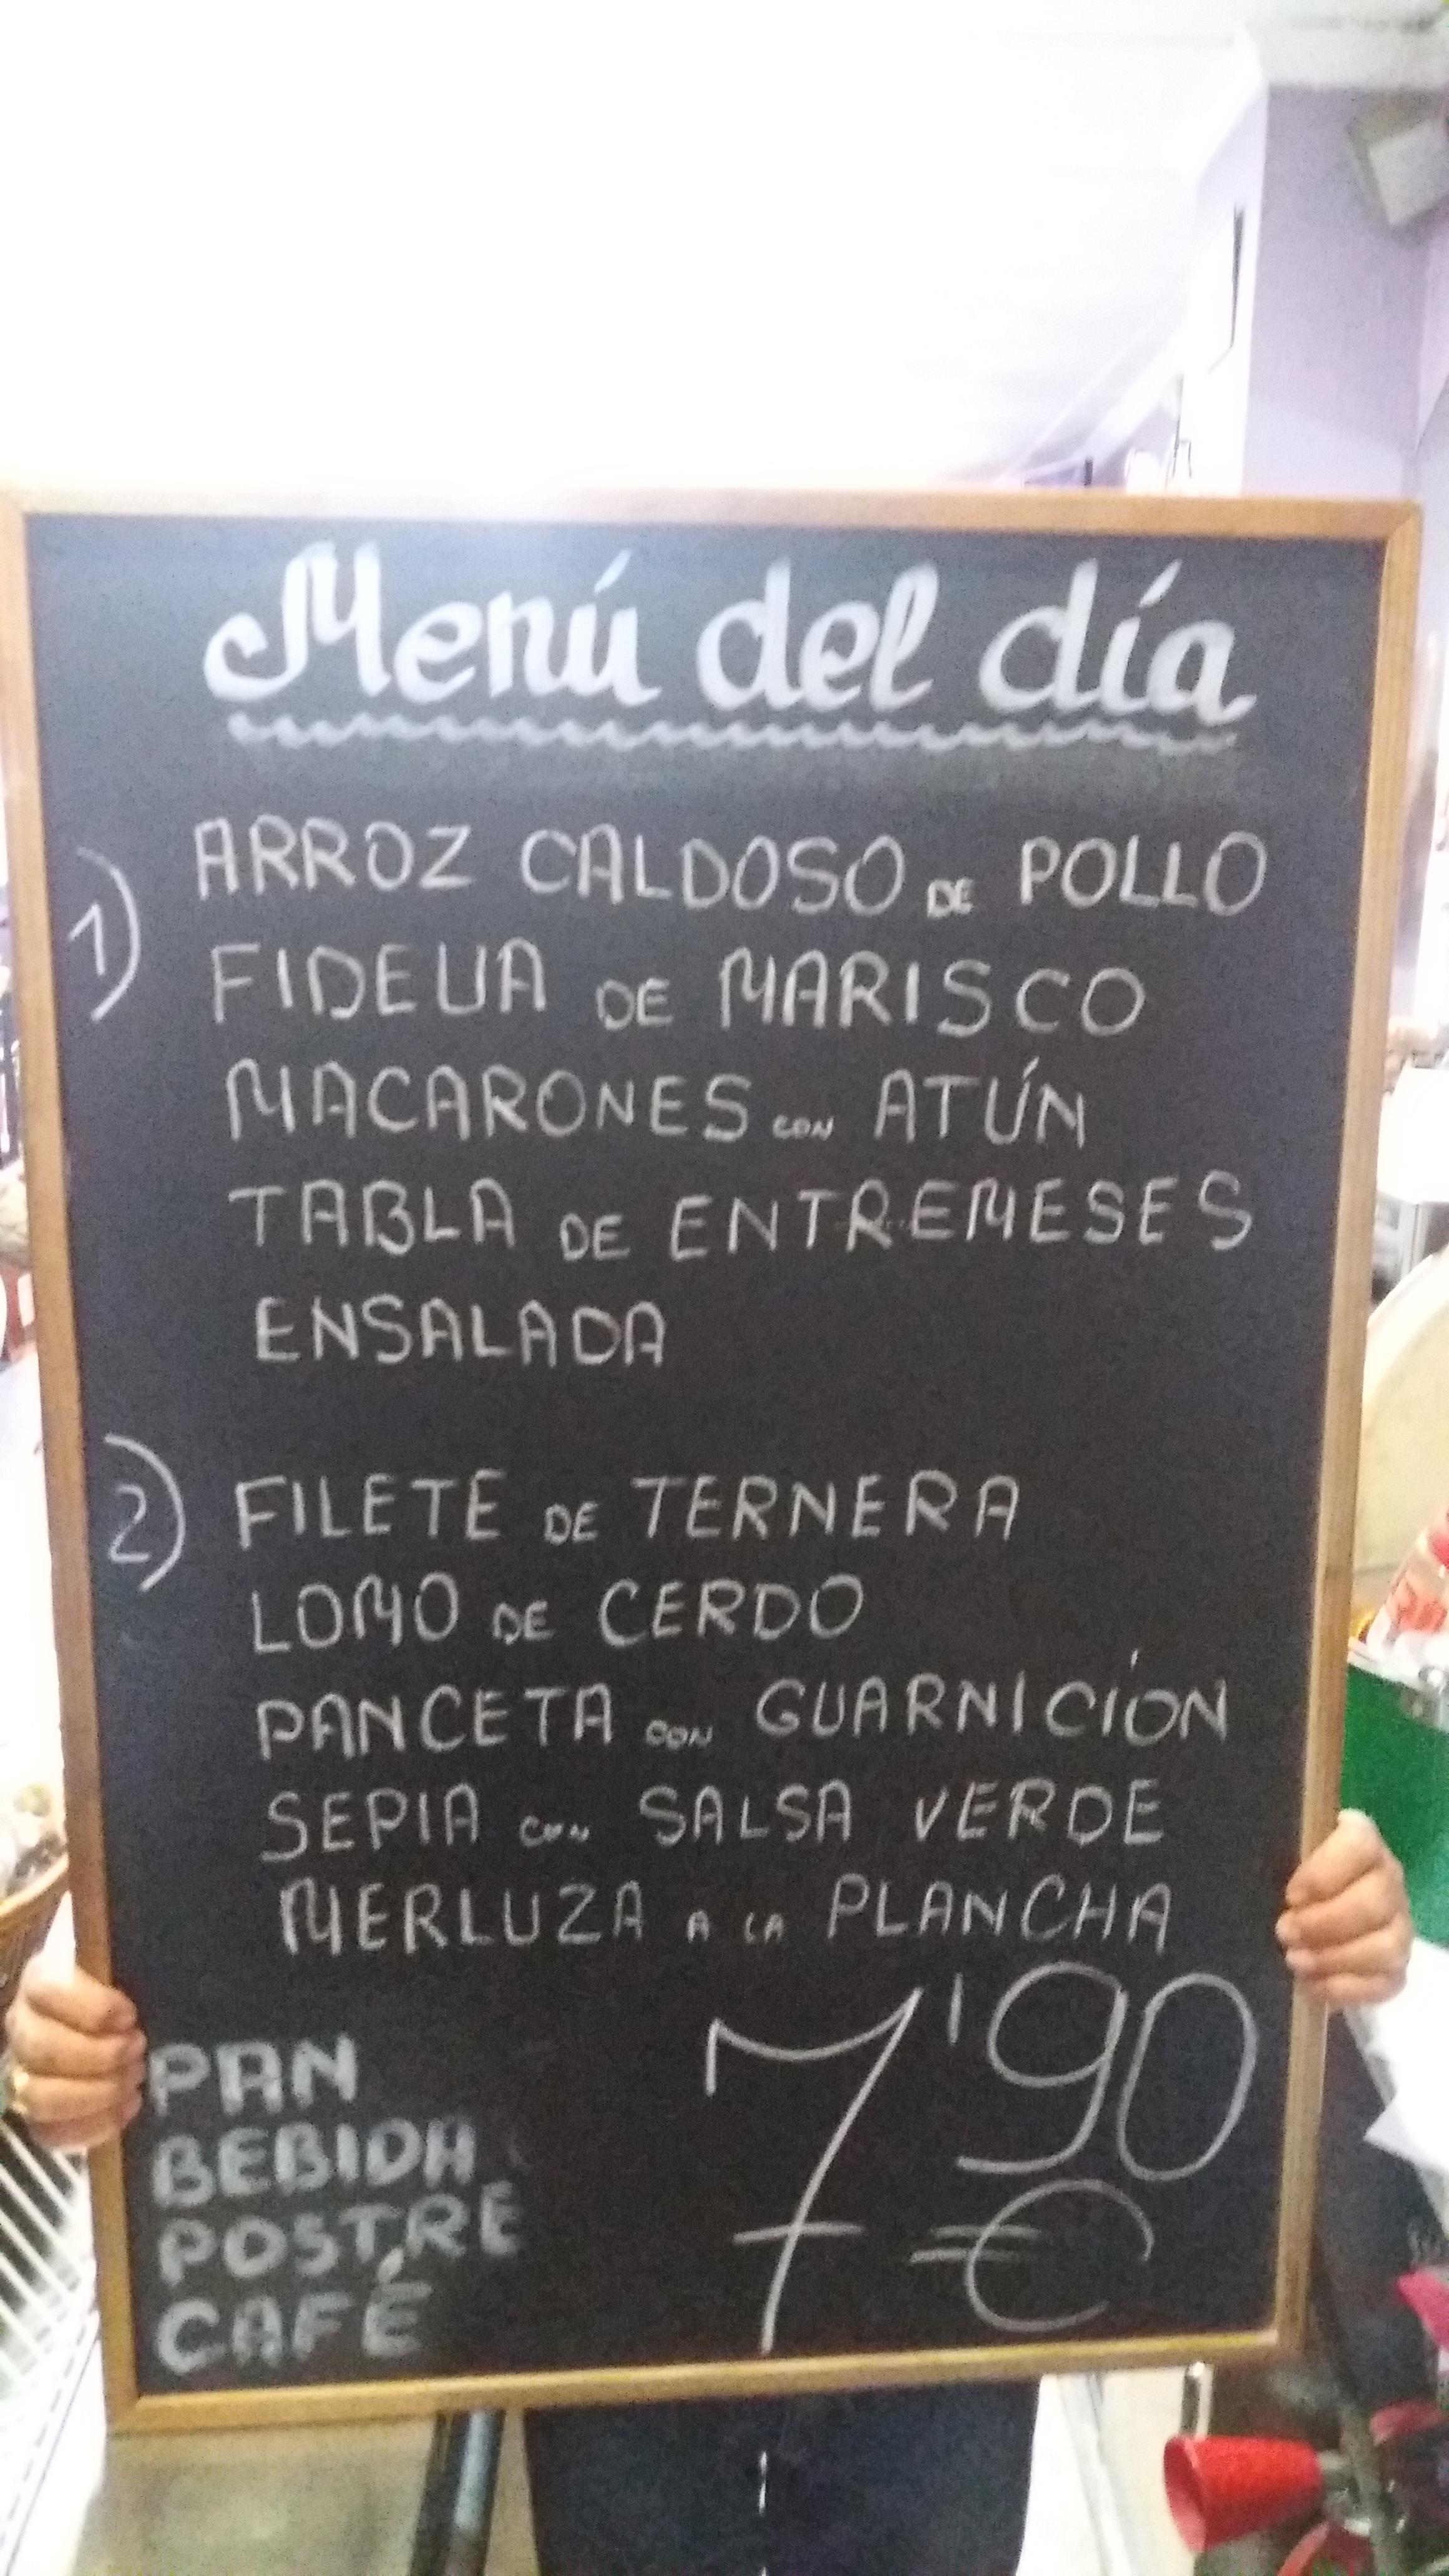 Menú del día
1) ARROZ CALDOSO DE POLLO
FIDEUA DE MARISCO
MACARONES CON ATÚN
TABLA DE ENTREMESES
ENSALADA
2) FILETE DE TERNERA
LOMO DE CERDO
PANCETA CON GUARNICIÓN
SEPIA CON SALSA VERDE
MERLUZA A LA PLANCHA
PAN
BEBIDA
POSTRE
CAFÉ
7'90
€